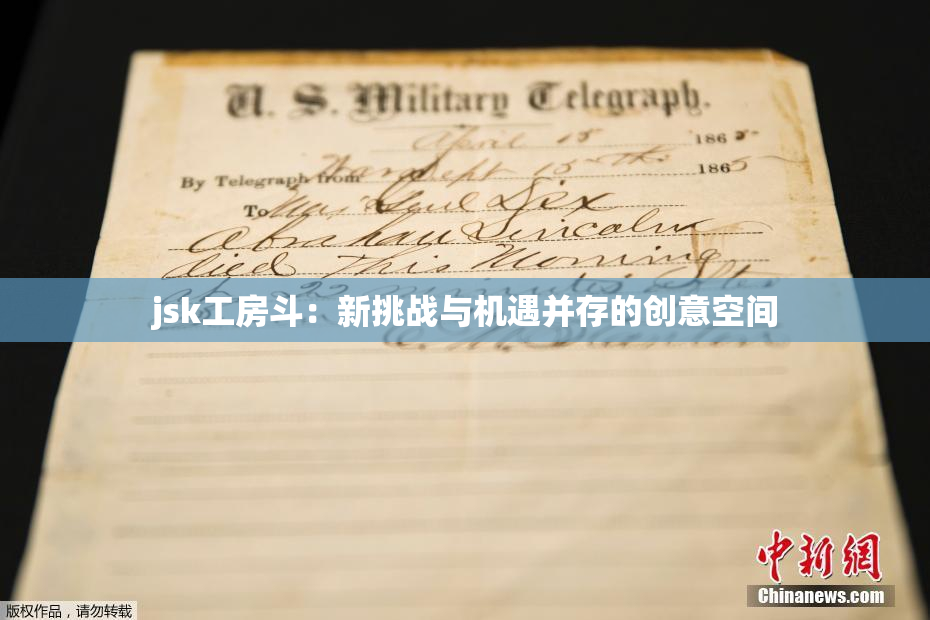 U. S. Military Telegraph.
April 15 1865
By Telegraph from War Dept 15th 1865
To Maj Genl Dix
Abraham Lincoln
died this Morning
at 22 minutes after
jsk工房斗：新挑战与机遇并存的创意空间
E. M. Stanton
中新网
Chinanews.com
版权作品，请勿转载